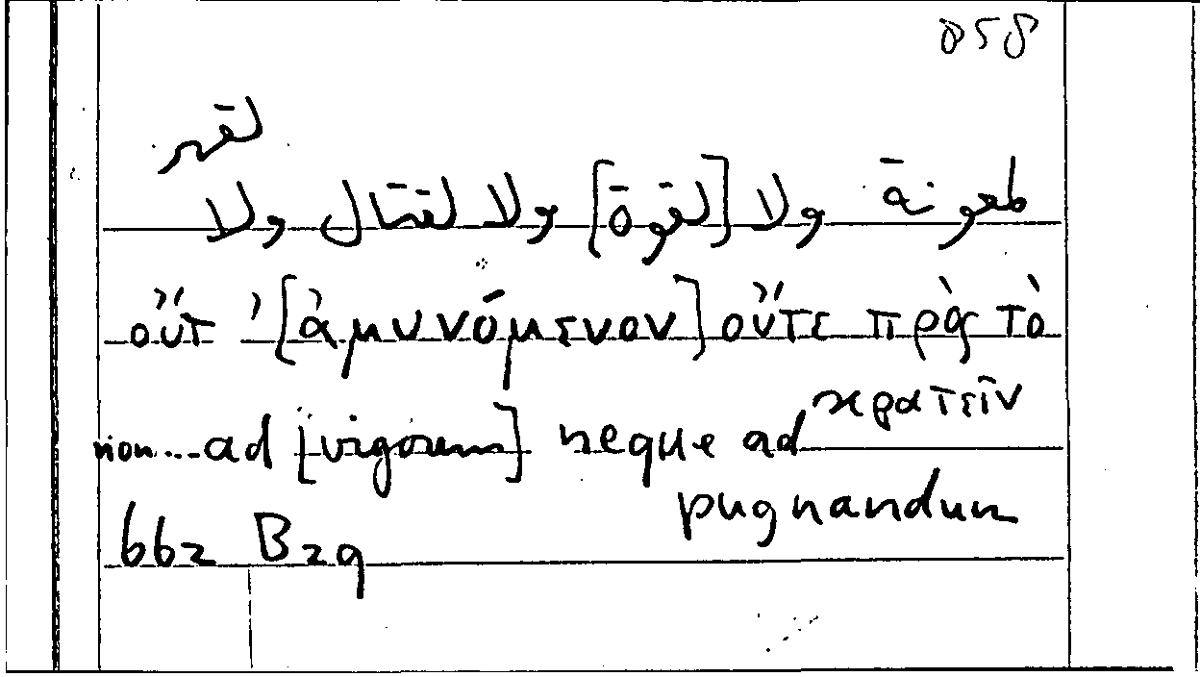 858
لقهر
لمعونة ولا [لقوة] ولا لقتال ولا
οὔτ ’[ἀμυνόμενον] οὔτε πρὸς τὸ
κρατεῖν
non...ad [vigorem] neque ad
pugnandum
662 B29